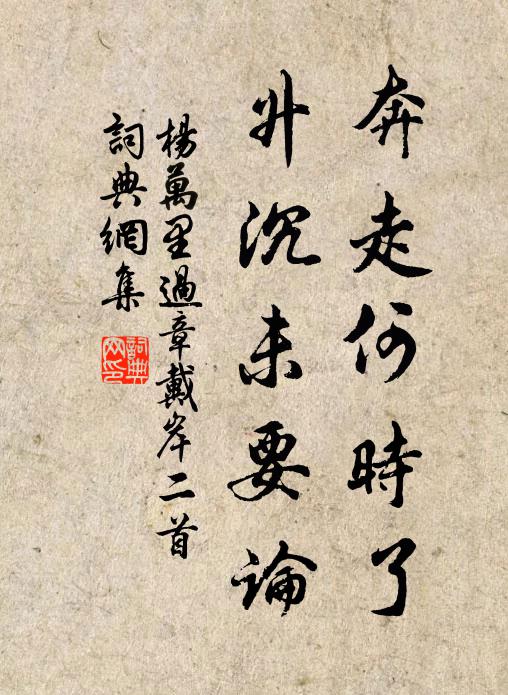 奔走何時了
升沉未要論
楊萬里過章戴岸二首
詞典網集
詞典网印